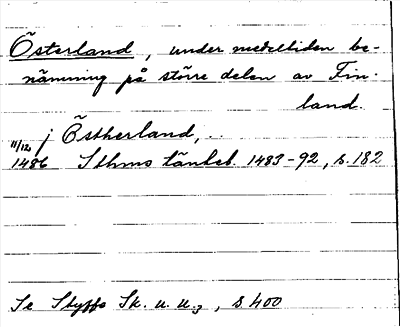 Österland, under medeltiden be-
nämning på större delen av Fin-
land.
11/12, j Östherland, ..
1486 Sthms tänkeb. 1483-92, s. 182
Se Styffs Sk. u. u.3, s 400